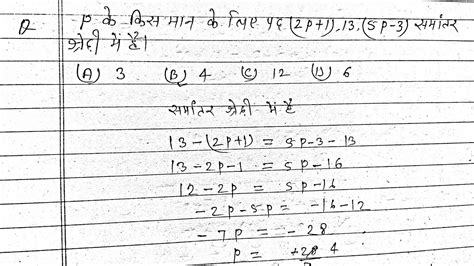 Q p के किस मान के लिए पद (2p+1), 13, (5p-3) समांतर
श्रेढी में है।
(A) 3 (B) 4 (C) 12 (D) 6
समांतर श्रेढी में है
13-(2p+1) = 5p-3-13
13-2p-1 = 5p-16
12-2p = 5p-16
-2p-5p = -16-12
-7p = -28
p = +28 4
7